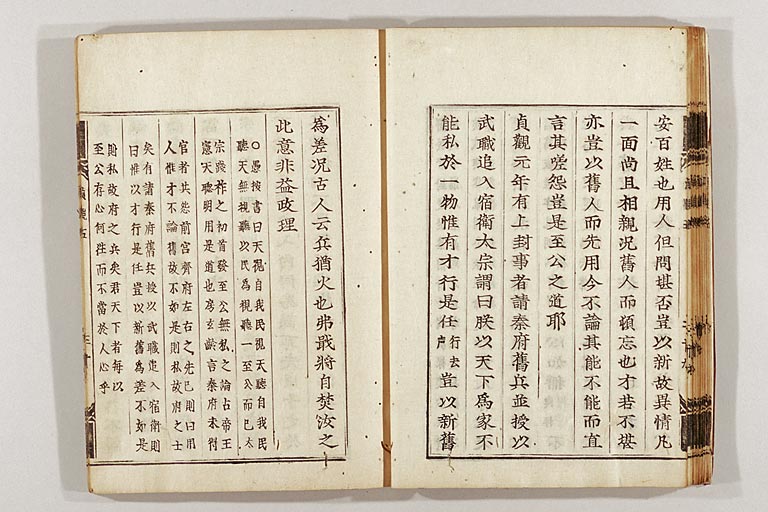 安百姓也用人但問堪否豈以新故異情凡
一面尚且相親況舊人而頓忘也才若不堪
亦豈以舊人而先用今不論其能不能而直
言其嗟怨豈是至公之道耶
貞觀元年有上封事者請秦府舊兵並授以
武職追入宿衛太宗謂曰朕以天下爲家不
能私於一物惟有才行是任行去户豈以新舊
爲差況古人云兵猶火也弗戢將自焚汝之
此意非益政理
○愚按書曰天視自我民視天聽自我民
聽天無視聽以民爲視聽一至公而已太
宗踐祚之初首發至公無私之論占帝王
憲天聰明用是道也房玄齡言秦府未得
官者共怨前宮齊府左右之先己則曰用
人惟才不論舊故不如是則私故府之士
矣有請秦府舊兵授以武職追入宿衛則
曰惟以才行是任豈以新舊爲差不如是
則私故府之兵矣君天下者每以
至公存心何往而不當於人心乎